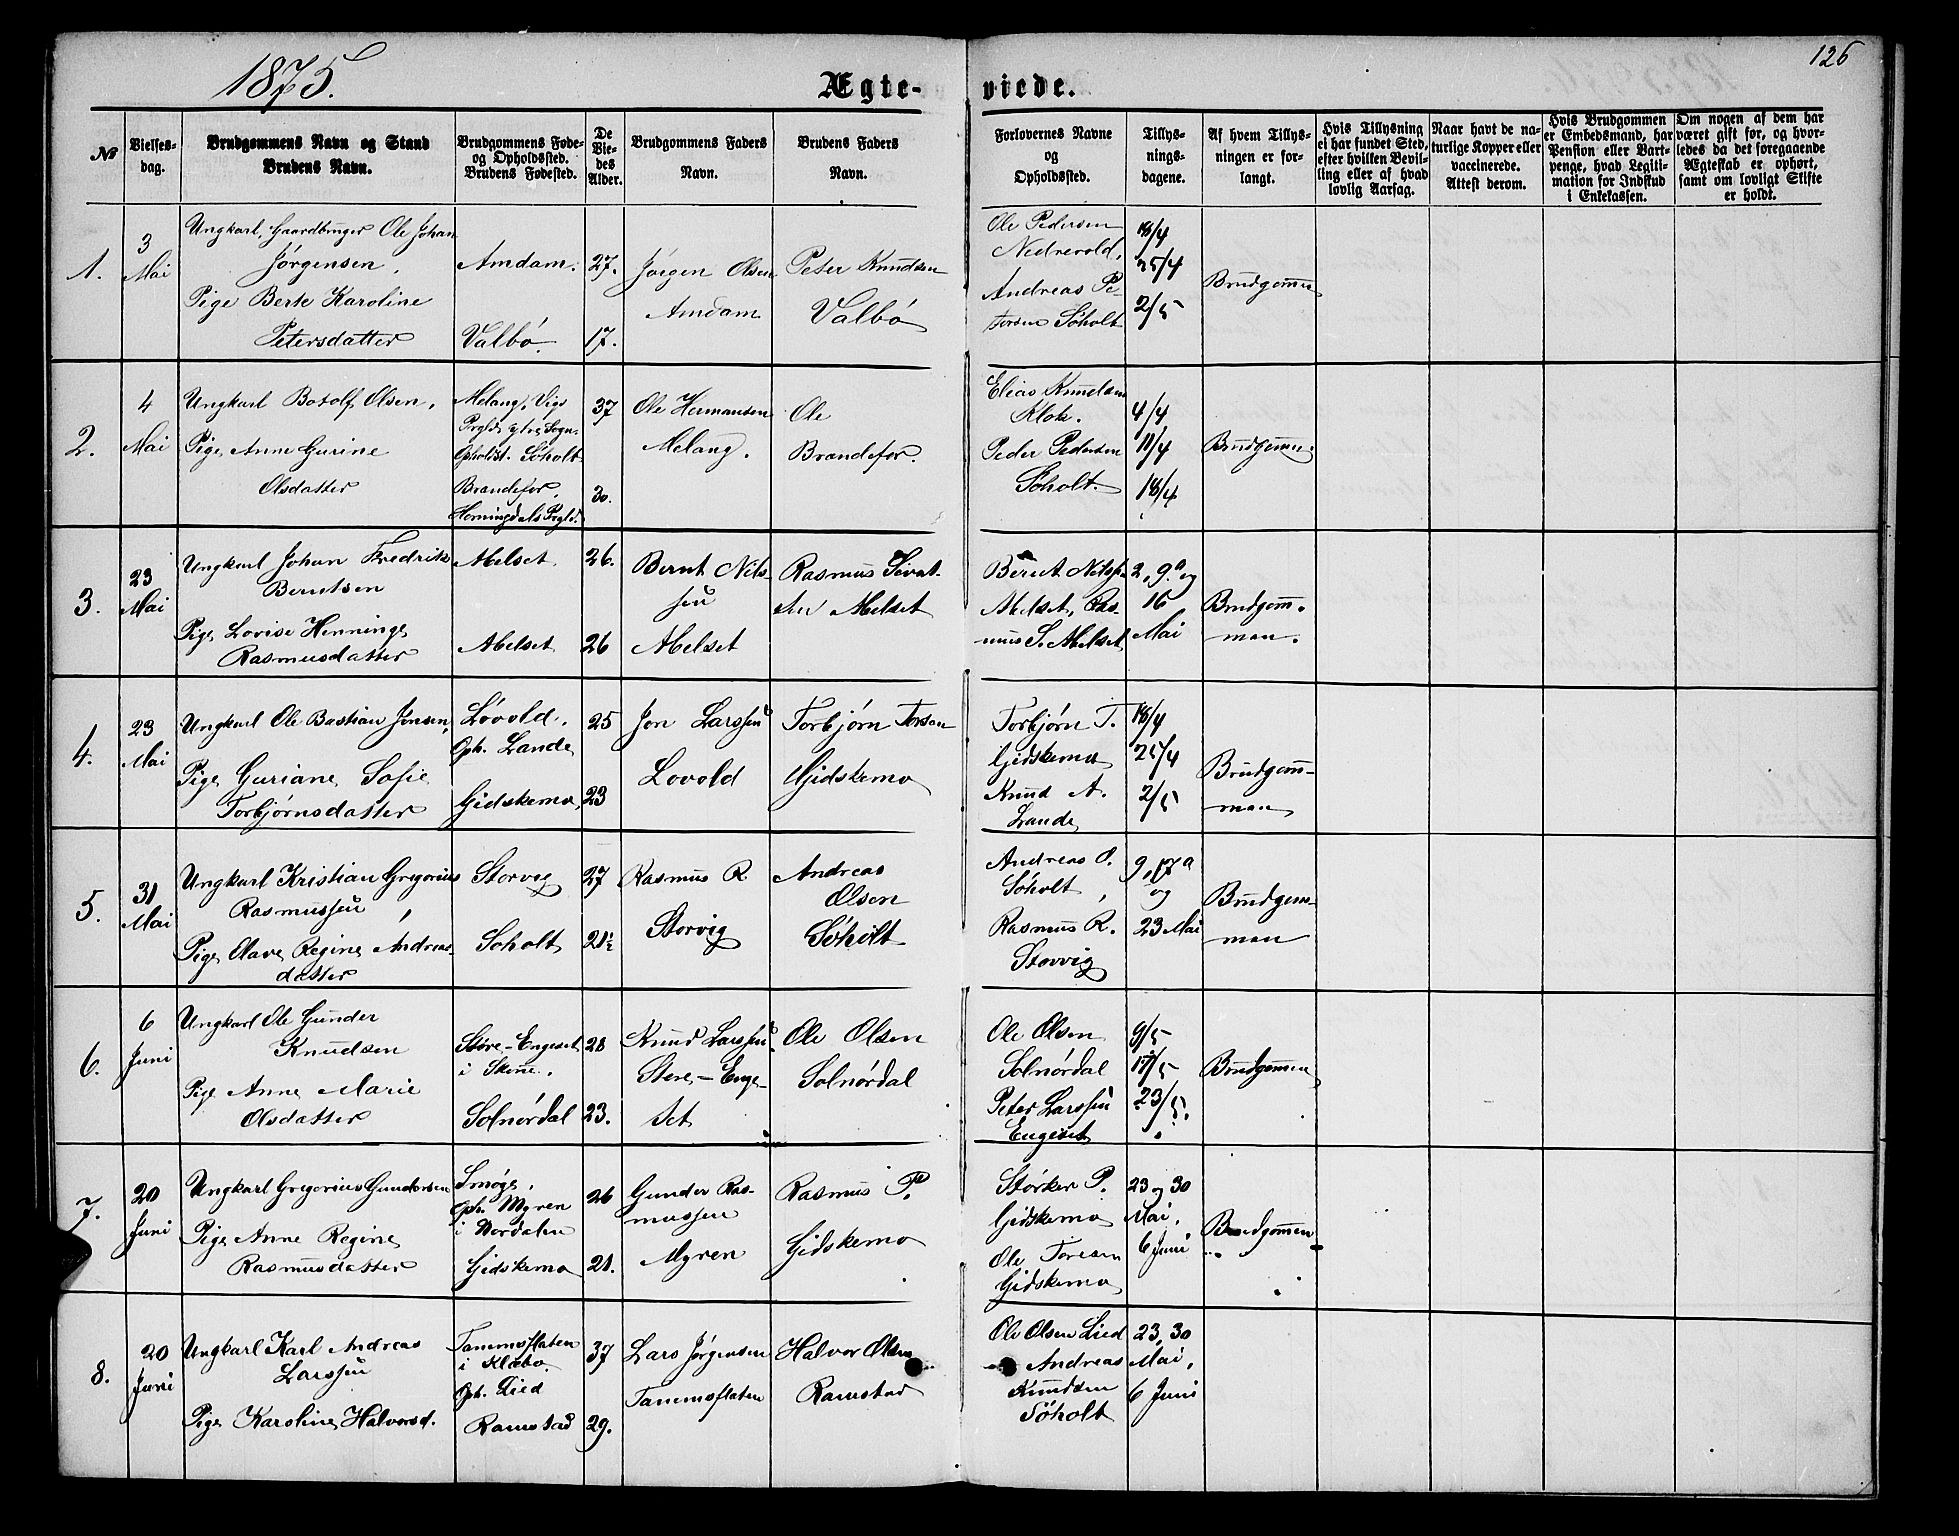 1875.
Ægte-
viede.
126
No
Vielses-
dag.
Brudgommens Navn og Stand
Brudens Navn.
Brudgommens Føde-
og Opholdssted.
Brudens Fødested.
De
Vie-
des
Alder.
Brudgommens Faders
Navn.
Brudens Faders
Navn.
Forlovernes Navne
og
Opholdssted.
Tillys-
nings-
dagene.
Af hvem Tillys-
ningen er for-
langt.
Hvis Tillysning
ei har fundet Sted,
efter hvilken Bevil-
ling eller af hvad
lovlig Aarsag.
Naar havt de na-
turlige Kopper eller
vaccinerede.
Attest derom.
Hvis Brudgommen
er Embedsmand, har
Pension eller Vart-
penge, hvad Legiti-
mation for Indskud
i Enkekassen.
Om nogen af dem har
været gift før, og hvor-
ledes da det foregaaende
Ægteskab er ophørt,
samt om lovligt Skifte
er holdt.
1.
3
Mai
Ungkarl, Gaardbruger Ole Johan
Jørgensen.
Pige Berte Karoline
Petersdatter
Amdam.
Valbø.
27.
17.
Jørgen Olsen
Amdam
Peter Knudsen
Valbø
Ole Pedersen
Nedrevold,
Andreas Pe-
tersen Søholt
18/4
25/4
2/5
Brudgommen
2.
4
Mai
Ungkarl Botolf Olsen,
Pige Anne Gurine
Olsdatter
Melang, Vigs
Prgld, ytre Sogn.
Opholdst. Søholt
Brandefor,
Horningdals Prgld.
37
30.
Ole Hermansen
Melang.
Ole
Brandefor.
Elias Knudsen
Klok.
Peder Pedersen
Søholt.
4/4
11/4
18/4
Brudgommen.
3.
23
Mai
Ungkarl Johan Fredrik
Berntsen
Pige Lovise Henninge
Rasmusdatter
Abelset
Abelset
26.
26
Bernt Nils-
sen
Abelset
Rasmus Sivat-
sen Abelset
Bernt Nilssen
Abelset, Ras-
mus S. Abelset
2, 9. og
16
Mai
Brudgom-
man.
4.
23
Mai
Ungkarl Ole Bastian Jonsen,
Pige Guriane Sofie
Torbjørnsdatter
Løvold,
Oph. Lande
Gidskemo
25
23
Jon Larssen
Lovold
Torbjørn Torsen
Gidskemo
Torbjørn T.
Gidskemo
Knud A.
Lande
18/4
25/4
2/5
Brudgom-
man
5.
31
Mai
Ungkarl Kristian Gregorius
Rasmussen
Pige Olave Regine Andreas-
datter
Storvig
Soholt
27
21½
Rasmus R.
Storvig
Andreas
Olsen
Søholt
Andreas O.
Søholt,
Rasmus R.
Storvig
9, 17
og
23 Mai
Brudgom-
man
6.
6
Juni
Ungkarl Ole Gunder
Knudsen
Pige Anne Marie
Olsdatter
Støre-Engeset
i Skoue.
Solnørdal
28
23.
Knud Larssen
Store-Enge-
set
Ole Olsen
Solnørdal
Ole Olsen
Solnørdal
Peter Larssen
Engeset
9/5
17/5
23/5.
Brudgommen
7.
20
Juni
Ungkarl Gregorius Gundersen
Pige Anne Regine
Rasmusdatter
Smøge,
Oph. Myren
i Nordalen
Gidskemo
26
21.
Gunder Ras-
mussen
Myren
Rasmus P.
Gidskemo
Størker P.
Gidskemo
Ole Toresen
Gidskemo
23 og 30
Mai,
6 Juni
Brudgommen
8.
20
Juni
Ungkarl Karl Andreas
Larssen
Pige Karoline Halvorsd.
Tanemsflaten
i Klæbo
Oph. Lied
Ramstad
37
29.
Lars Jørgensen
Tanemsflaten
Halvor Olsen
Ramstad
Ole Olsen Lied
Andreas
Knudsen
Søholt
23, 30
Mai,
6 Juni